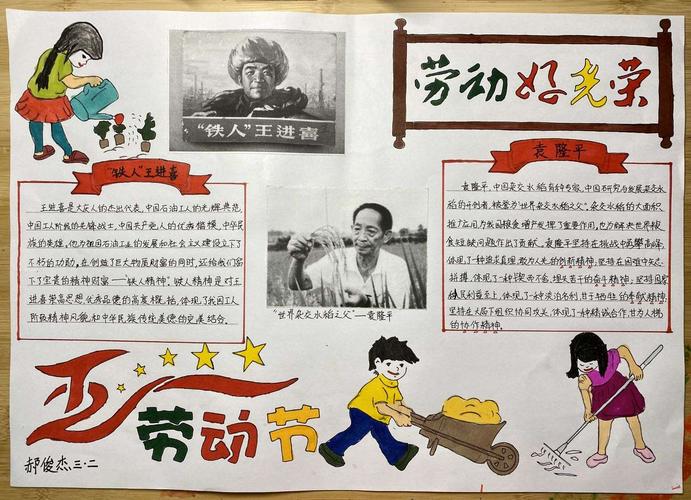 劳动最光荣
"铁人"王进喜
"铁人"王进喜
王进喜是大庆人的杰出代表,中国石油工人的光辉典范,
中国工人阶级的先锋战士,中国共产党人的优秀楷模,中华民
族的英雄。他为祖国石油工业的发展和社会主义建设立下了
不朽的功勋。在创造了巨大物质财富的同时,还给我们留
下了宝贵的精神财富——铁人精神。铁人精神是对王
进喜崇高思想、优秀品德的高度概括,体现了我国工人
阶级精神风貌和中华民族传统美德的完美结合。
"世界杂交水稻之父"—袁隆平
袁隆平
袁隆平,中国杂交水稻育种专家,中国研究与发展杂交水
稻的开创者,被誉为"世界杂交水稻之父"。杂交水稻的大面积
推广应用为我国粮食增产发挥了重要作用,也为解决世界粮
食短缺问题作出了贡献。袁隆平坚持在挑战中攀高峰,
体现了一种追求真理、敢为人先的创新精神;坚持在困难中文
拼搏,体现了一种锲而不舍、埋头苦干的奋斗精神;坚持国家
人民利益至上,体现了一种淡泊名利、甘于牺牲的奉献精神;
坚持在大局下组织协同攻关,体现了一种精诚合作、甘为人梯
的协作精神。
劳动节
郝俊杰 三·二